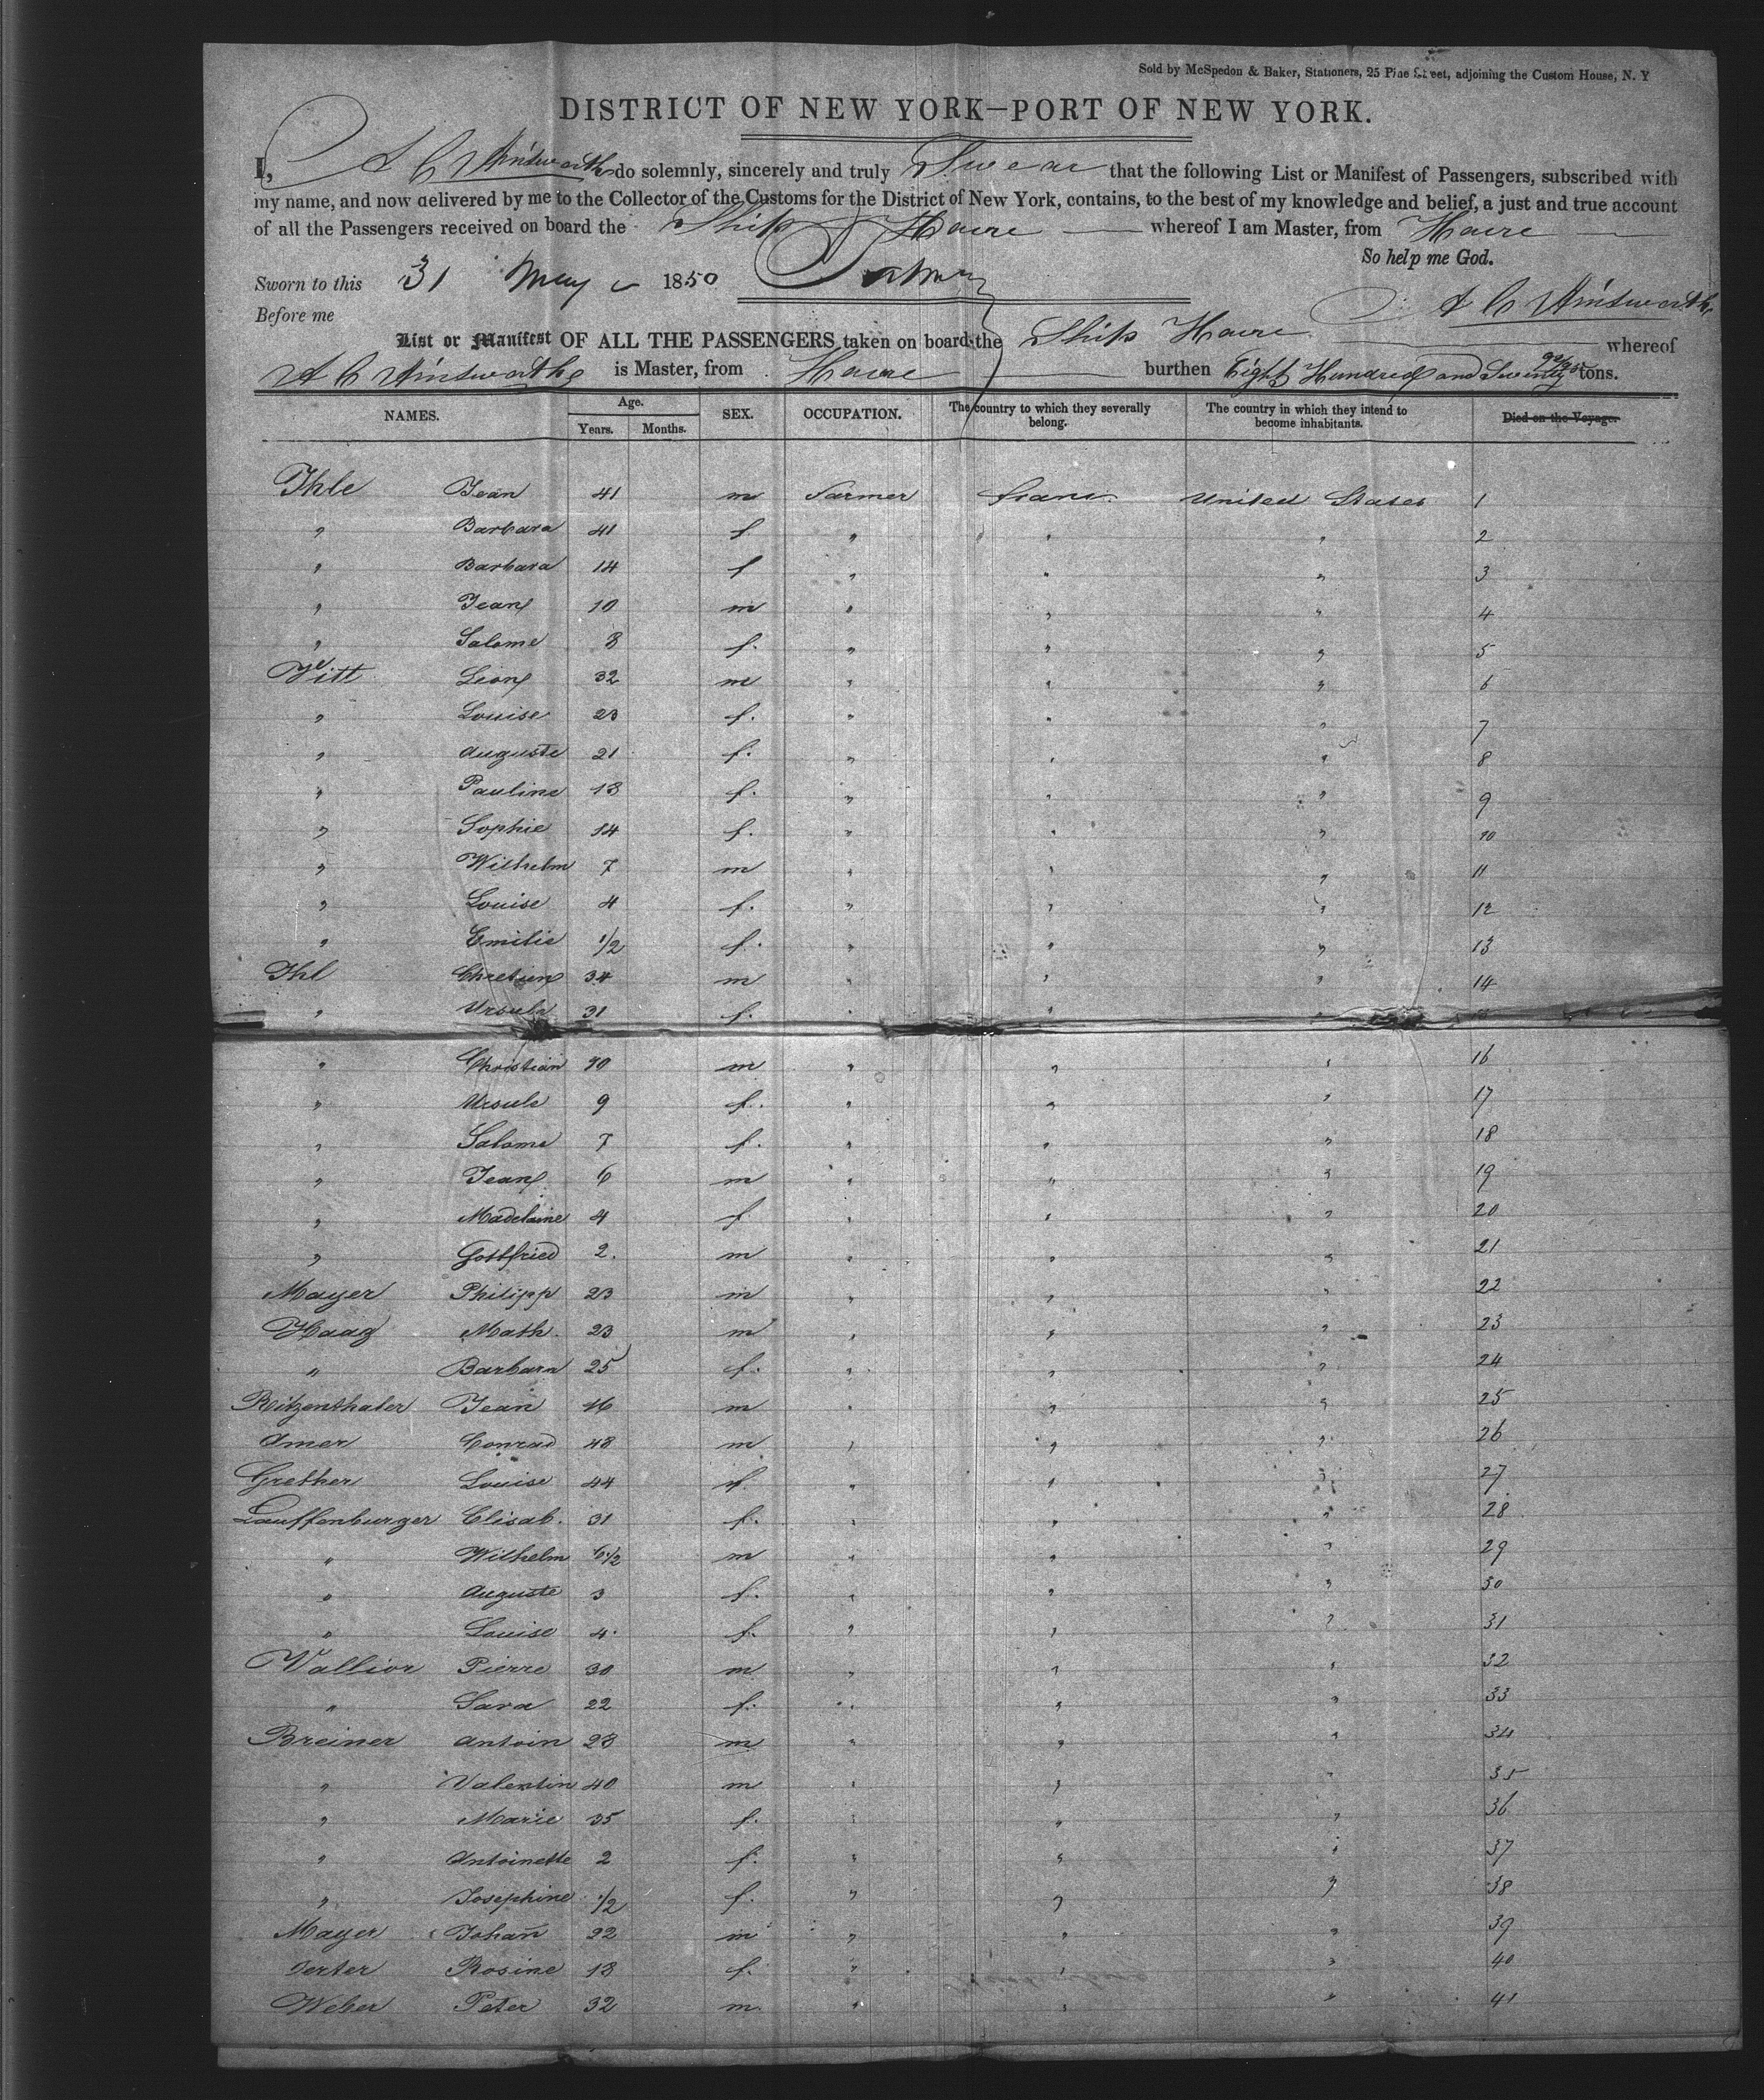 Sold by McSpedon & Baker, Stationers, 25 Pine Street, adjoining the Custom House, N. Y
DISTRICT OF NEW YORK—PORT OF NEW YORK.
I, A C Ainsworth do solemnly, sincerely and truly Swear that the following List or Manifest of Passengers, subscribed with
my name, and now delivered by me to the Collector of the Customs for the District of New York, contains, to the best of my knowledge and belief, a just and true account
of all the Passengers received on board the Ship Havre whereof I am Master, from Havre
So help me God.
Sworn to this 31 May 1850
A C Ainsworth
Before me
List or Manifest OF ALL THE PASSENGERS taken on board the Ship Havre whereof
A C Ainsworth is Master, from Havre burthen Eight Hundred and Seventy tons.
NAMES. Age. Years. Months. SEX. OCCUPATION. The country to which they severally belong. The country in which they intend to become inhabitants. Died on the Voyage.
Ihle Jean 41 m Farmer France United States 1
" Barbara 41 f " " " 2
" Barbara 14 f " " " 3
" Jean 10 m " " " 4
" Salome 8 f. " " " 5
32 m " " " 6
" Louise 23 f. " " " 7
" Auguste 21 f. " " " 8
" Pauline 18 f. " " " 9
" Sophie 14 f. " " " 10
" Wilhelm 7 m " " " 11
" Louise 4 f. " " " 12
" Emilie 1/2 f. " " " 13
Ihl Chretien 34 m " " " 14
" Ursule 31 f. " " "
" Christian 10 m " " " 16
" Ursule 9 f. " " " 17
" Salome 7 f. " " " 18
" Jean 6 m " " " 19
" Madelaine 4 f " " " 20
" Gottfried 2. m " " " 21
Mayer Philipp 23 m " " " 22
Haag Math. 23 m " " " 23
" Barbara 25 f. " " " 24
Ritzenthaler Jean 16 m " " " 25
Amer Conrad 48 m " " " 26
Grether Louise 44 f. " " " 27
Lauffenburger Elisab. 31 f. " " " 28
" Wilhelm 6 1/2 m " " " 29
" Auguste 3 f. " " " 30
" Louise 4. f. " " " 31
Wallior Pierre 30 m " " " 32
" Sara 22 f. " " " 33
Breiner Antoin 23 m " " " 34
" Valentin 40 m " " " 35
" Marie 35 f. " " " 36
" Antoinette 2 f. " " " 37
" Josephine 1/2 f. " " " 38
Mayer Johan̄ 22 m " " " 39
Rosine 18 f. " " " 40
Weber Peter 32 m " " " 41